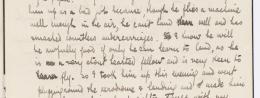 him up as a bad job because though he flies a machine
well enough in the air, he can't land well and has
smashed countless undercarriages. So I know he will
be awfully good if only he can learn to land, as he
is a very stout hearted fellow and is very keen to
fly. So I took him up this evening and went
the aerodrome & landing and make him